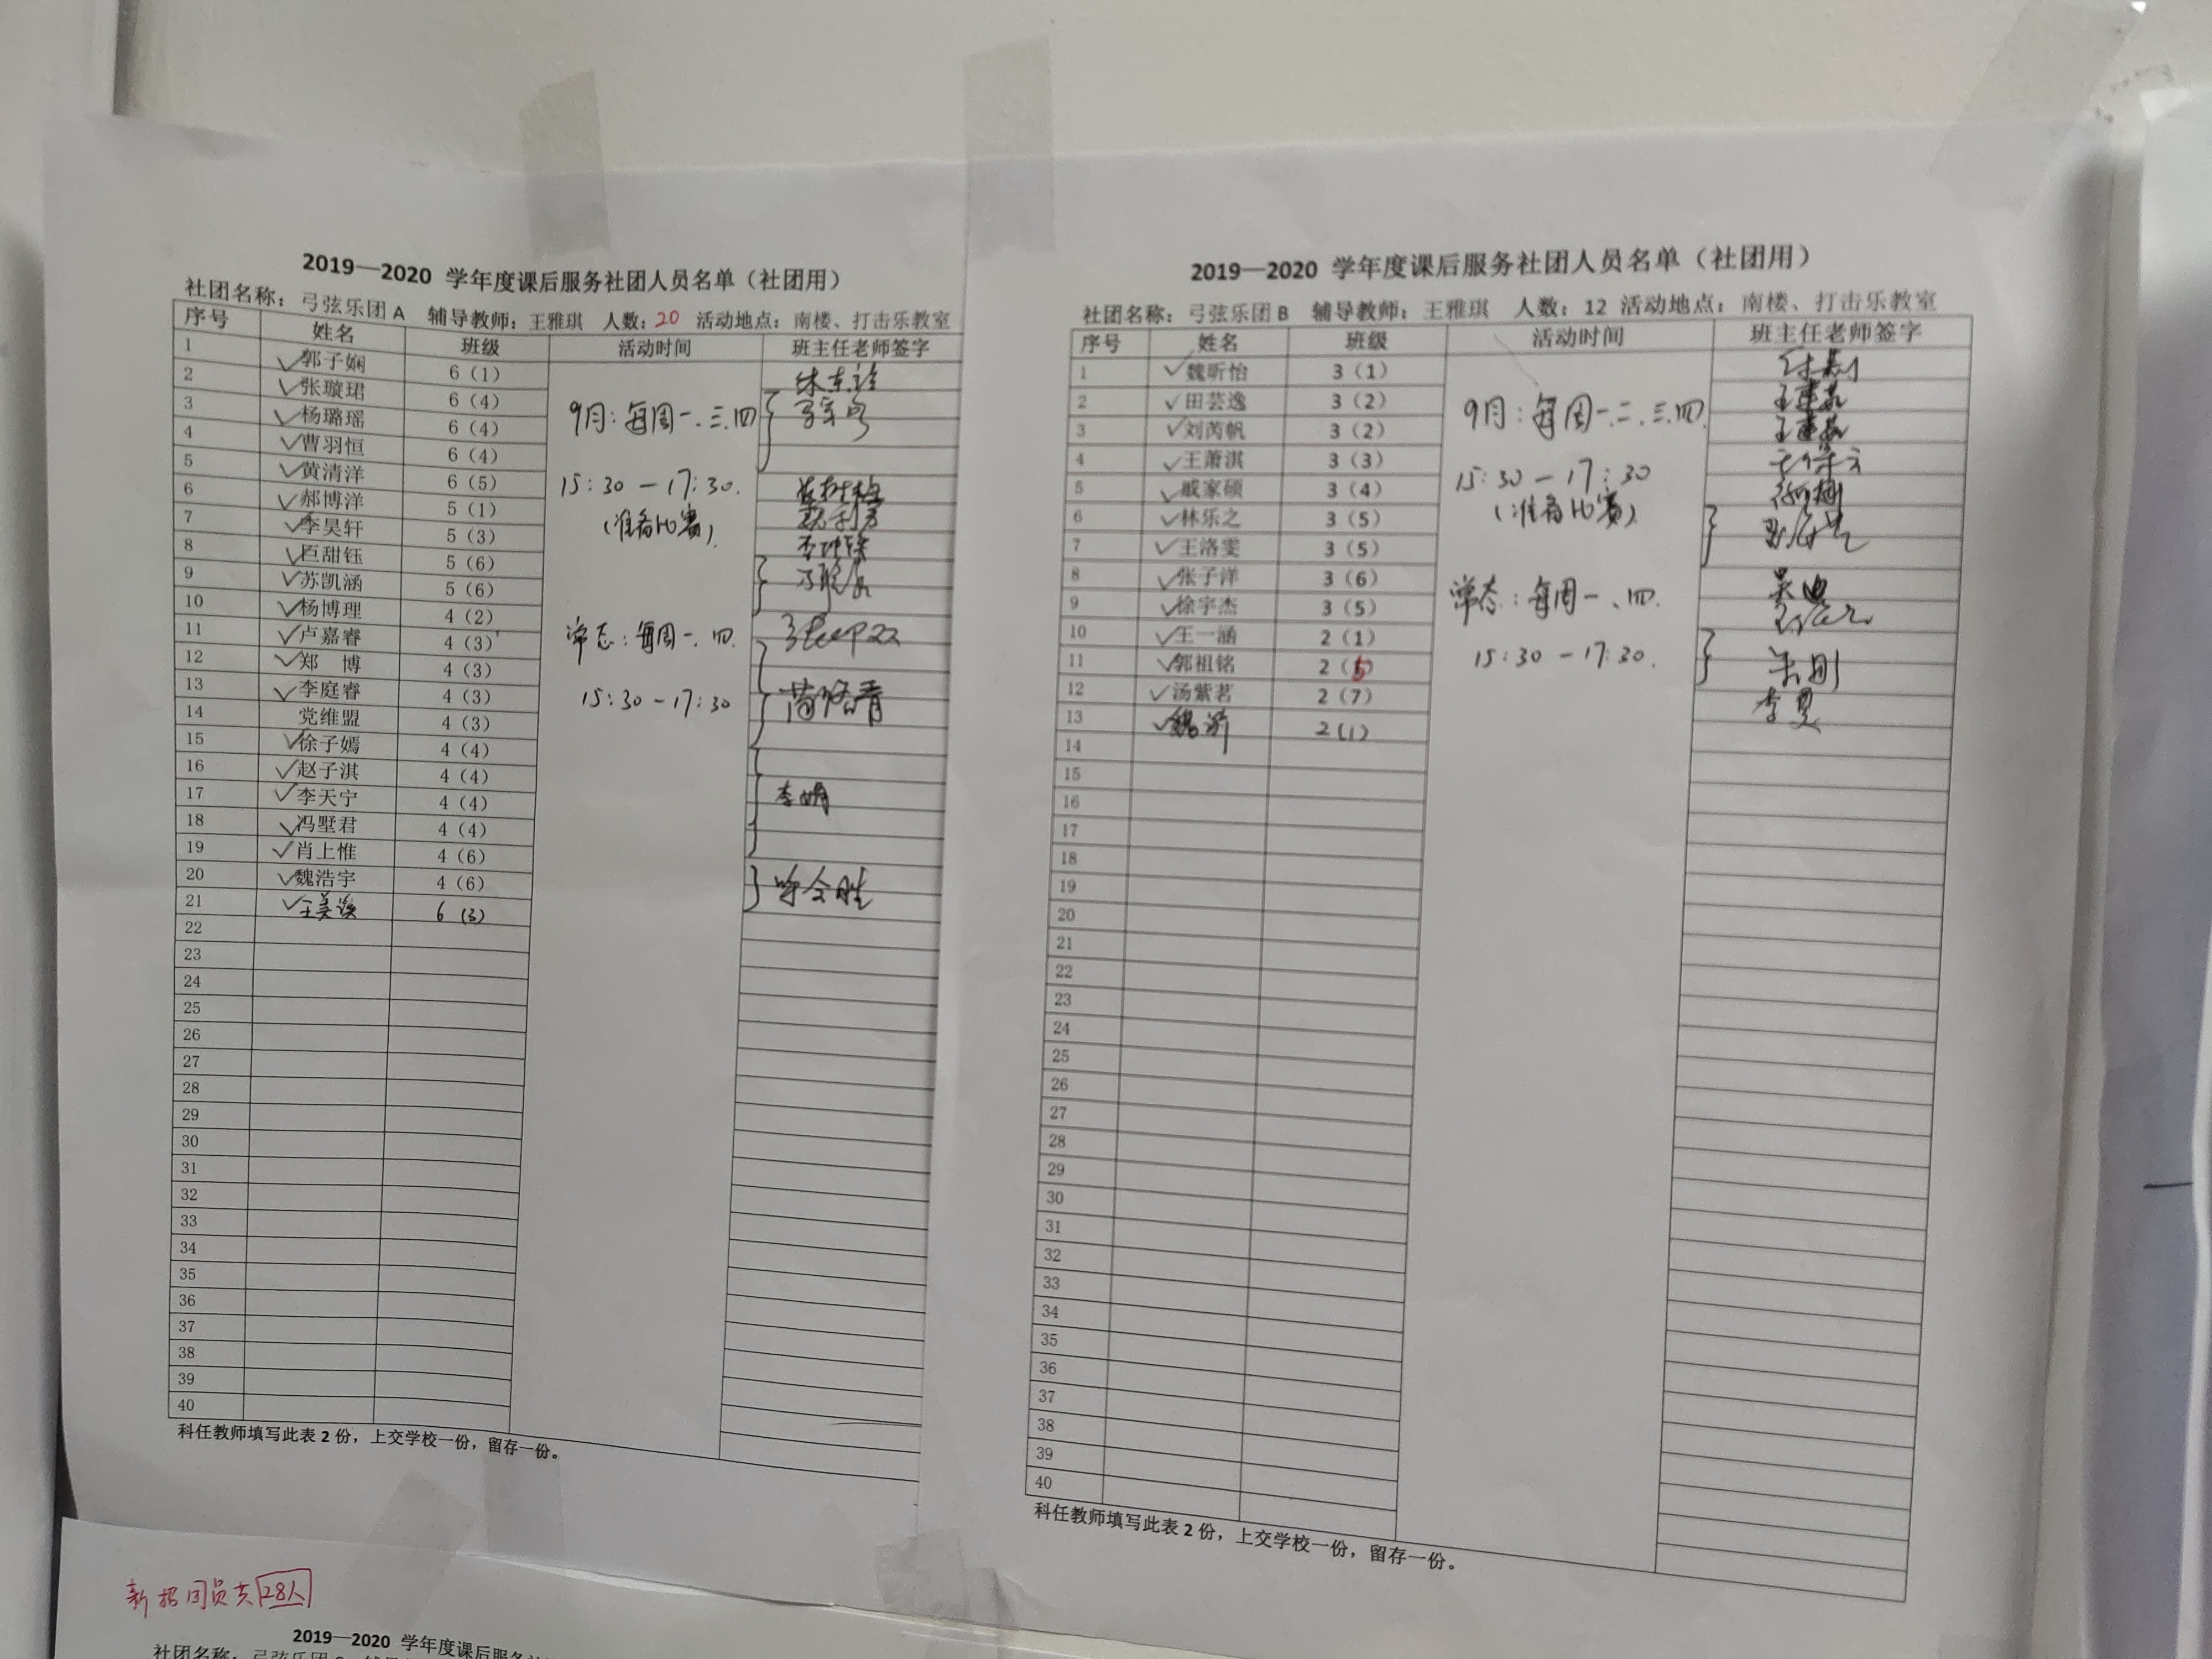 2019—2020 学年度课后服务社团人员名单（社团用）
社团名称：弓弦乐团 A 辅导教师：王雅琪 人数：20 活动地点：南楼、打击乐教室
序号 姓名 班级 活动时间 班主任老师签字
1 郭子娴 6（1）
2 张璇珺 6（4）
3 杨璐瑶 6（4）
4 曹羽恒 6（4）
5 黄清洋 6（5）
6 郝博洋 5（1）
7 李昊轩 5（3）
8 巨甜钰 5（6）
9 苏凯涵 5（6）
10 杨博理 4（2）
11 卢嘉睿 4（3）
12 郑 博 4（3）
13 李庭睿 4（3）
14 党维盟 4（3）
15 徐子嫣 4（4）
16 赵子淇 4（4）
17 李天宁 4（4）
18 冯墅君 4（4）
19 肖上惟 4（6）
20 魏浩宇 4（6）
21 6（3）
22
23
24
25
26
27
28
29
30
31
32
33
34
35
36
37
38
39
40
9月：每周一.三.四
15:30－17:30.
（准备比赛）.
常态：每周一.四.
15:30－17:30
科任教师填写此表 2 份，上交学校一份，留存一份。
2019—2020 学年度课后服务社团人员名单（社团用）
社团名称：弓弦乐团 B 辅导教师：王雅琪 人数：12 活动地点：南楼、打击乐教室
序号 姓名 班级 活动时间 班主任老师签字
1 魏昕怡 3（1）
2 田芸逸 3（2）
3 刘芮帆 3（2）
4 王萧淇 3（3）
5 戚家硕 3（4）
6 林乐之 3（5）
7 王洛雯 3（5）
8 张子洋 3（6）
9 徐宇杰 3（5）
10 王一涵 2（1）
11 郭祖铭 2（5）
12 汤紫茗 2（7）
13 2（1）
14
15
16
17
18
19
20
21
22
23
24
25
26
27
28
29
30
31
32
33
34
35
36
37
38
39
40
9月：每周一.二.三.四.
15:30－17:30
（准备比赛）
常态：每周一、四.
15:30－17:30.
科任教师填写此表 2 份，上交学校一份，留存一份。
新招团员共28人
2019—2020 学年度课后服务
社团名称：弓弦乐团